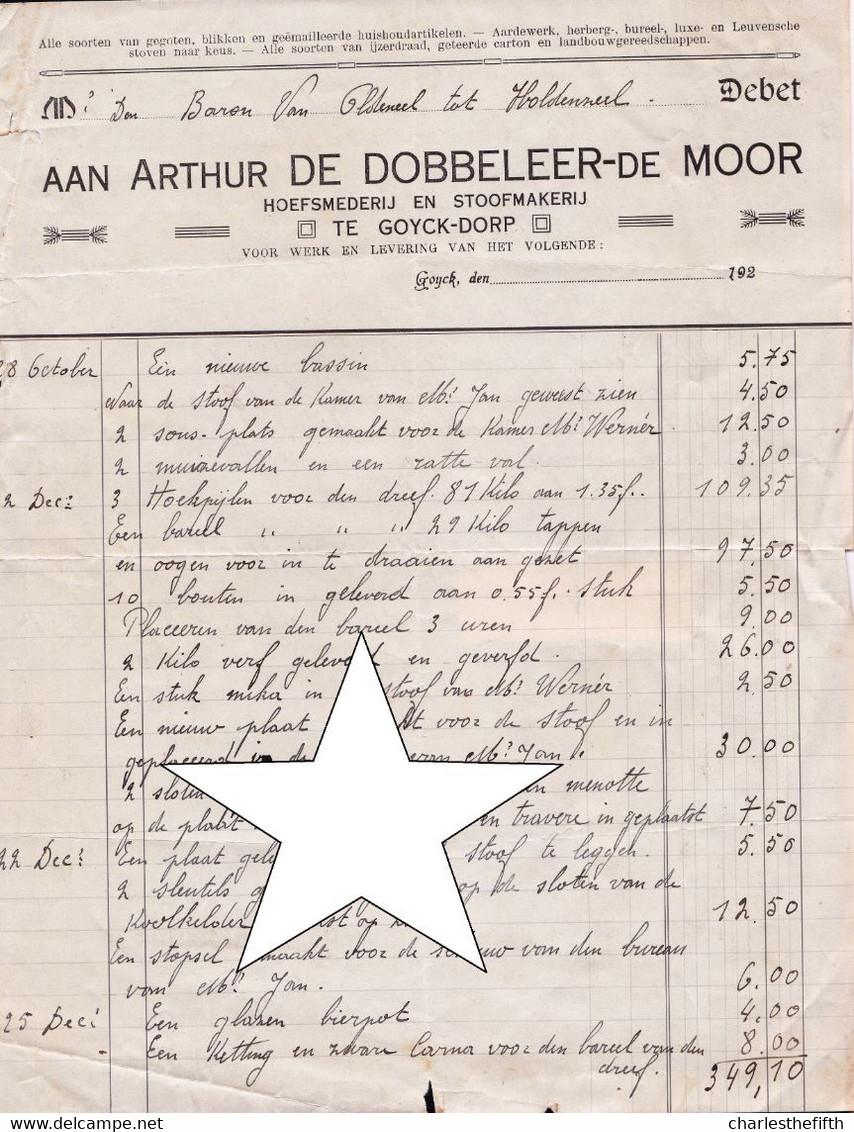 Alle soorten van gegoten, blikken en geëmailleerde huishoudartikelen. — Aardewerk, herberg-, bureel-, luxe- en Leuvensche
stoven naar keus. — Alle soorten van ijzerdraad, geteerde carton en landbouwgereedschappen.
Mr Den Baron Van Oldeneel tot Holdenzeel. Debet
AAN ARTHUR DE DOBBELEER-DE MOOR
HOEFSMEDERIJ EN STOOFMAKERIJ
TE GOYCK-DORP
VOOR WERK EN LEVERING VAN HET VOLGENDE:
Goyck, den 192
28 October Ein nieuwe bassin 5.75
Naar de stoof van de Kamer van Mr Jan geweest zien 4.50
2 sous-plats gemaakt voor de Kamer Mr Wernér. 12.50
2 muizevallen en een ratte val. 3.00
2 Decr 3 Hoekpijlen voor den dreef. 81 Kilo aan 1.35f.. 109.35
Een bareel " " " 29 Kilo tappen
en oogen voor in te draaien aan gezet 97.50
10 bouten in geleverd aan 0.55f. stuk 5.50
Placeeren van den bareel 3 uren 9.00
2 Kilo verf geleverd en geverfd. 26.00
Een stuk mika in stoof van Mr Wernér 2.50
Een nieuw plaat voor de stoof en in
geplaceerd in de van Mr Jan. 30.00
2 sloten menotte
op de plaat en travere in geplaatst 7.50
22 Decr Een plaat stoof te leggen. 5.50
2 sleutels op de sloten van de
Koolkelder op 12.50
Een stopsel gemaakt voor de van den bureau
van Mr Jan. 6.00
25 Decr Een glazen bierpot 4.00
- Een Ketting en zware Carna voor den bareel van den 8.00
dreef. 349,10
charlesthefifth